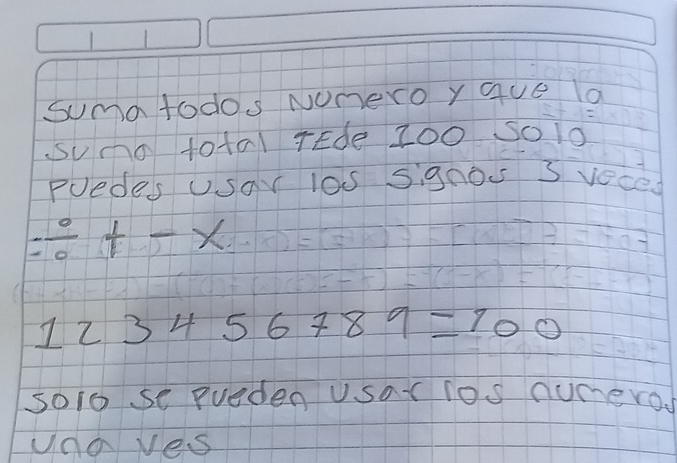 suma todos Numero y que la
suma total TEde 100 solo
puedes usar los signos 3 veces
÷ + - x
1 2 3 4 5 6 7 8 9 = 100
solo se pueden usar los numeros
una ves